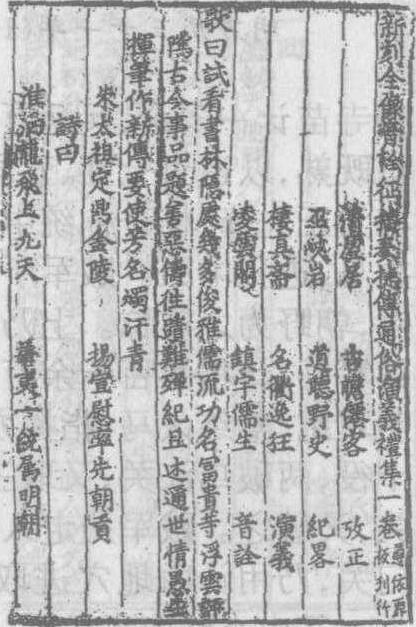 新刻全像音註征播奏捷傳通俗演義禮集一巻 遵依原板刊行
清虛居 吉瞻僊客 攷正
巫峽岩 道聽野史 紀畧
棲真斋 名衢逸狂 演義
凌雲閣 鎮宇儒生 音詮
歌曰試看書林隱處幾多俊雅儒流功名冨貴等浮雲評
隲古今事品題善惡儔往蹟難殫紀且述通世情愚
揮筆作新傳要使芳名燭汗青
朱太祖定鼎金陵 楊宣慰率先朝貢
詩曰
淮泗龍飛上九天 華夷一統属明朝